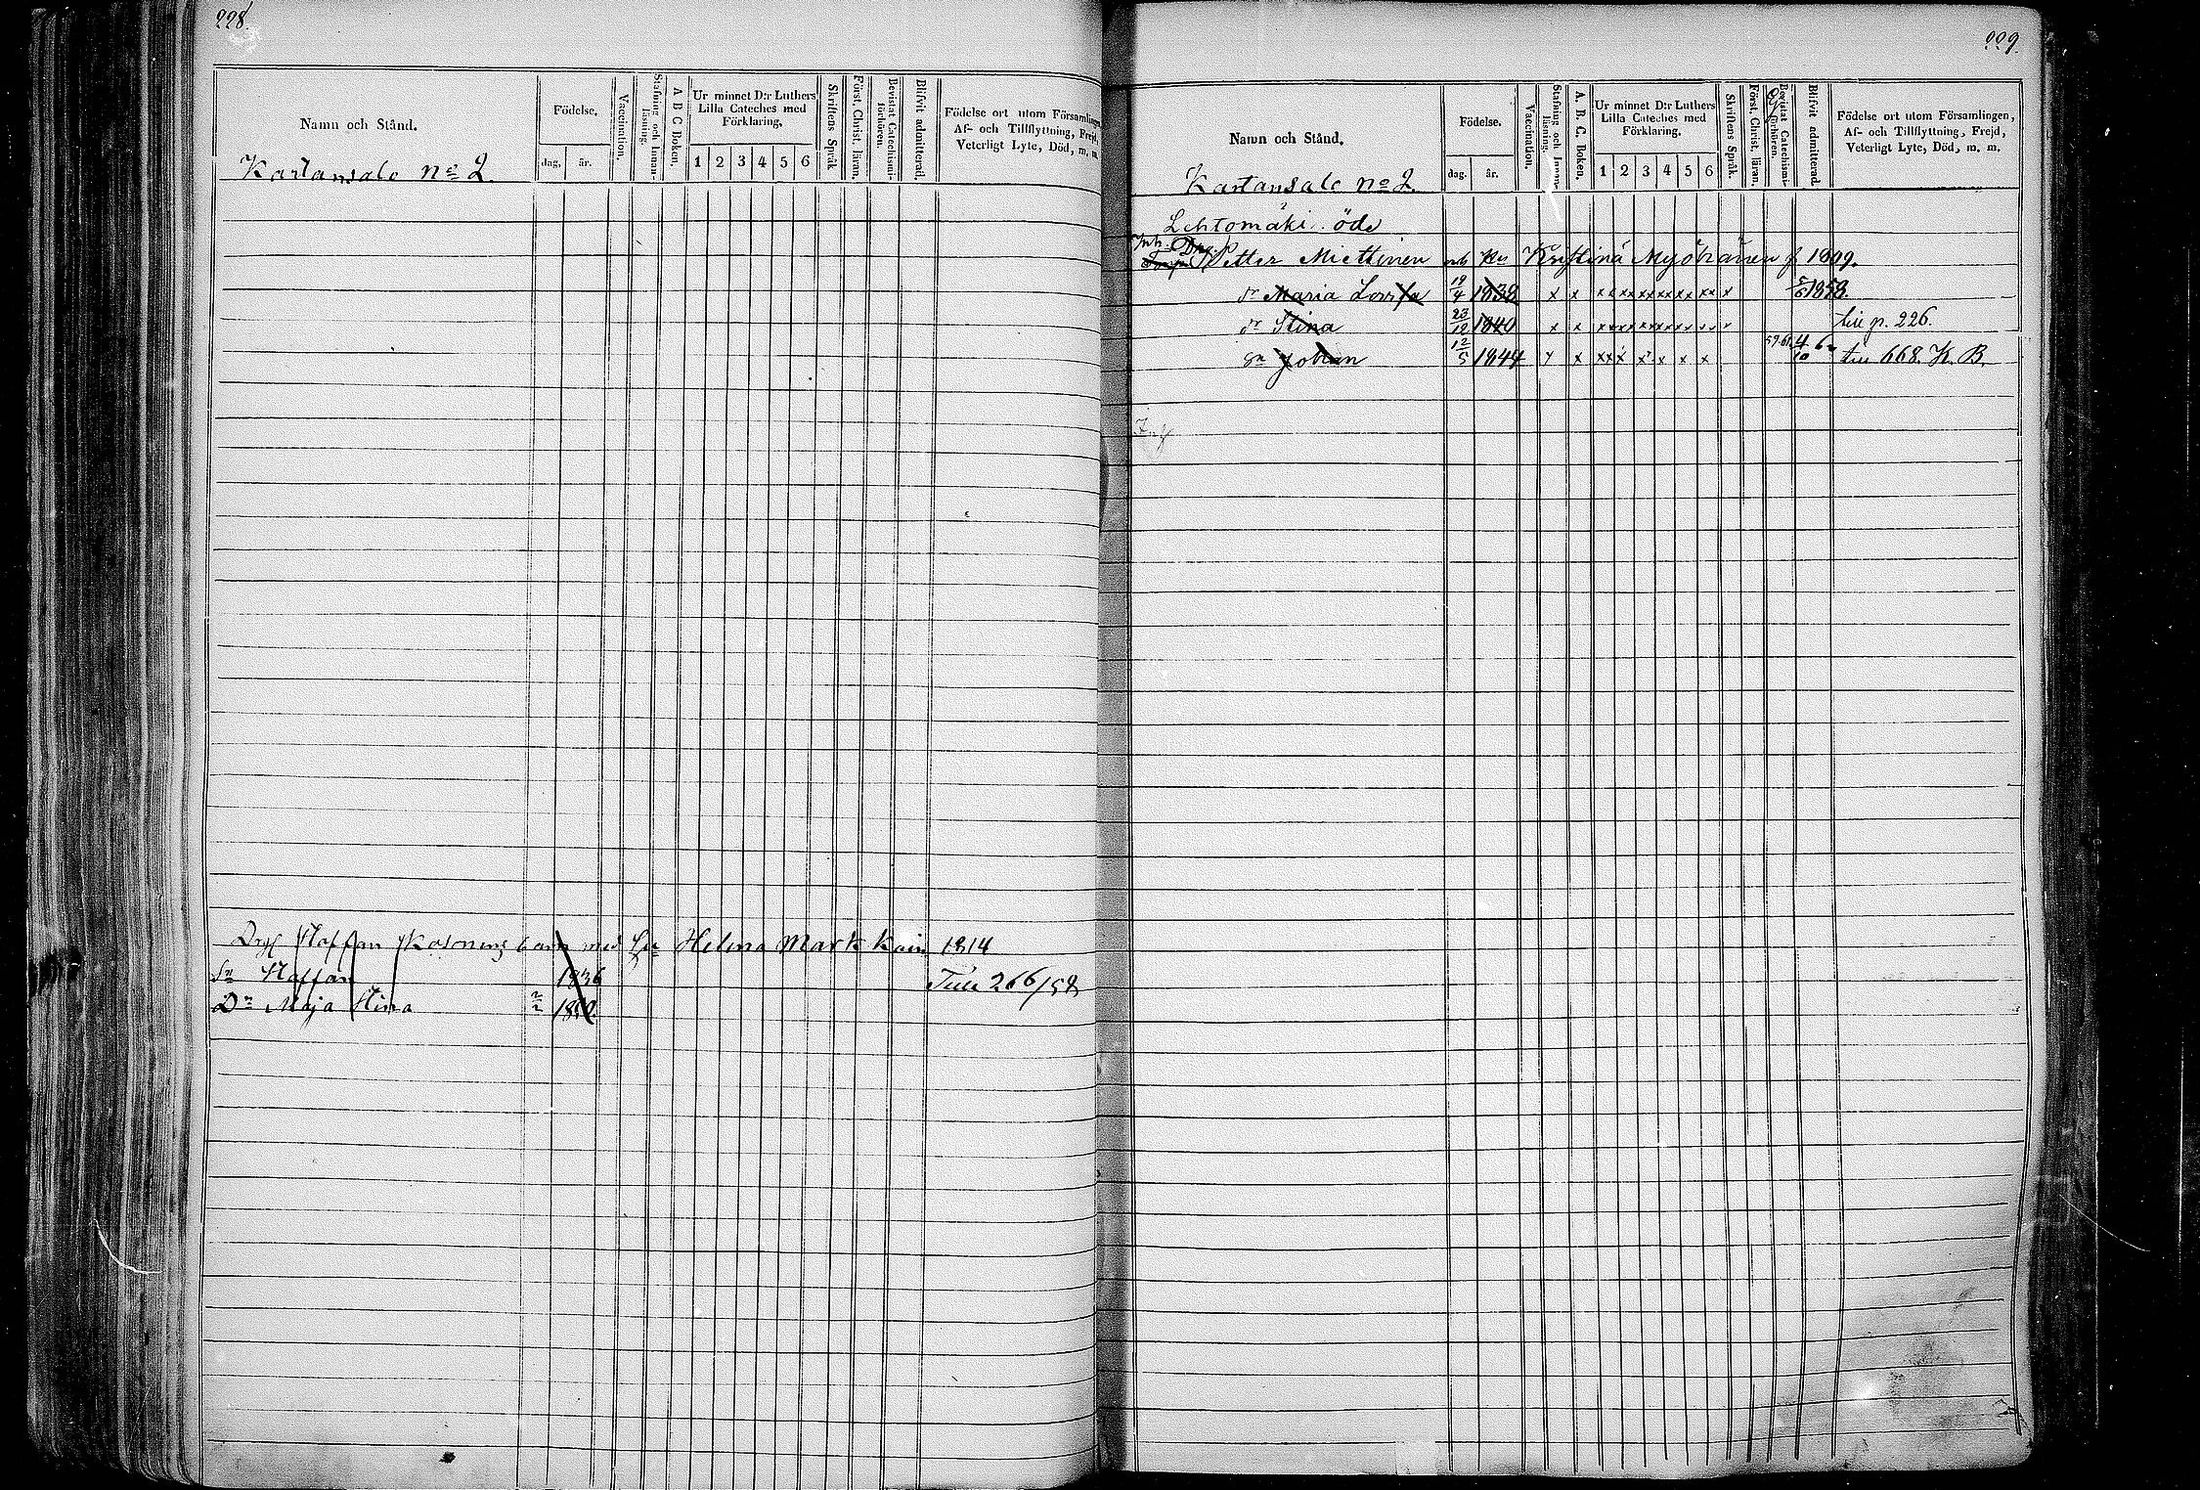 228.
Namn och Stånd.
Födelse.
dag.
år.
Vaccination.
Stafning och Innanläsning.
A B C Boken.
Ur minnet D:r Luthers
Lilla Cateches med
Förklaring,
1 2 3 4 5 6
Skriftens Språk
Först. Christ. läran.
Bevistat Catechismiförhören.
Blifvit admitterad.
Födelse ort utom Församlingen,
Af- och Tillflyttning, Frejd,
Veterligt Lyte, Död, m. m.
Kartansalo No 2.
Staffan barn med Helena Markkain 1814
Sn Staffan 1836 266/58
Dn Maja Stina 2/2
229.
Namn och Stånd.
Födelse.
dag.
år.
Vaccination.
Stafning och Innanläsning.
A. B. C. Boken.
Ur minnet D:r Luthers
Lilla Cateches med
Förklaring.
1 2 3 4 5 6
Skriftens Språk.
Först. Christ. läran.
Bevistat Catechismiförhören.
Blifvit admitterad.
Födelse ort utom Församlingen,
Af- och Tillflyttning, Frejd,
Veterligt Lyte, Död, m. m.
Kartansalo No 2.
Lehtomäki öde
Petter Miettinen Kristina Myöhänen f 1809.
dr Maria Lovisa 19/4 1838 x x x x x x x x x x x x x x 1858.
dr Stina 23/12 1840 x x x x x x x x x x x x x x p. 226.
Sn Johan 12/5 1844 x x x x x x x x x x 668. K. B.